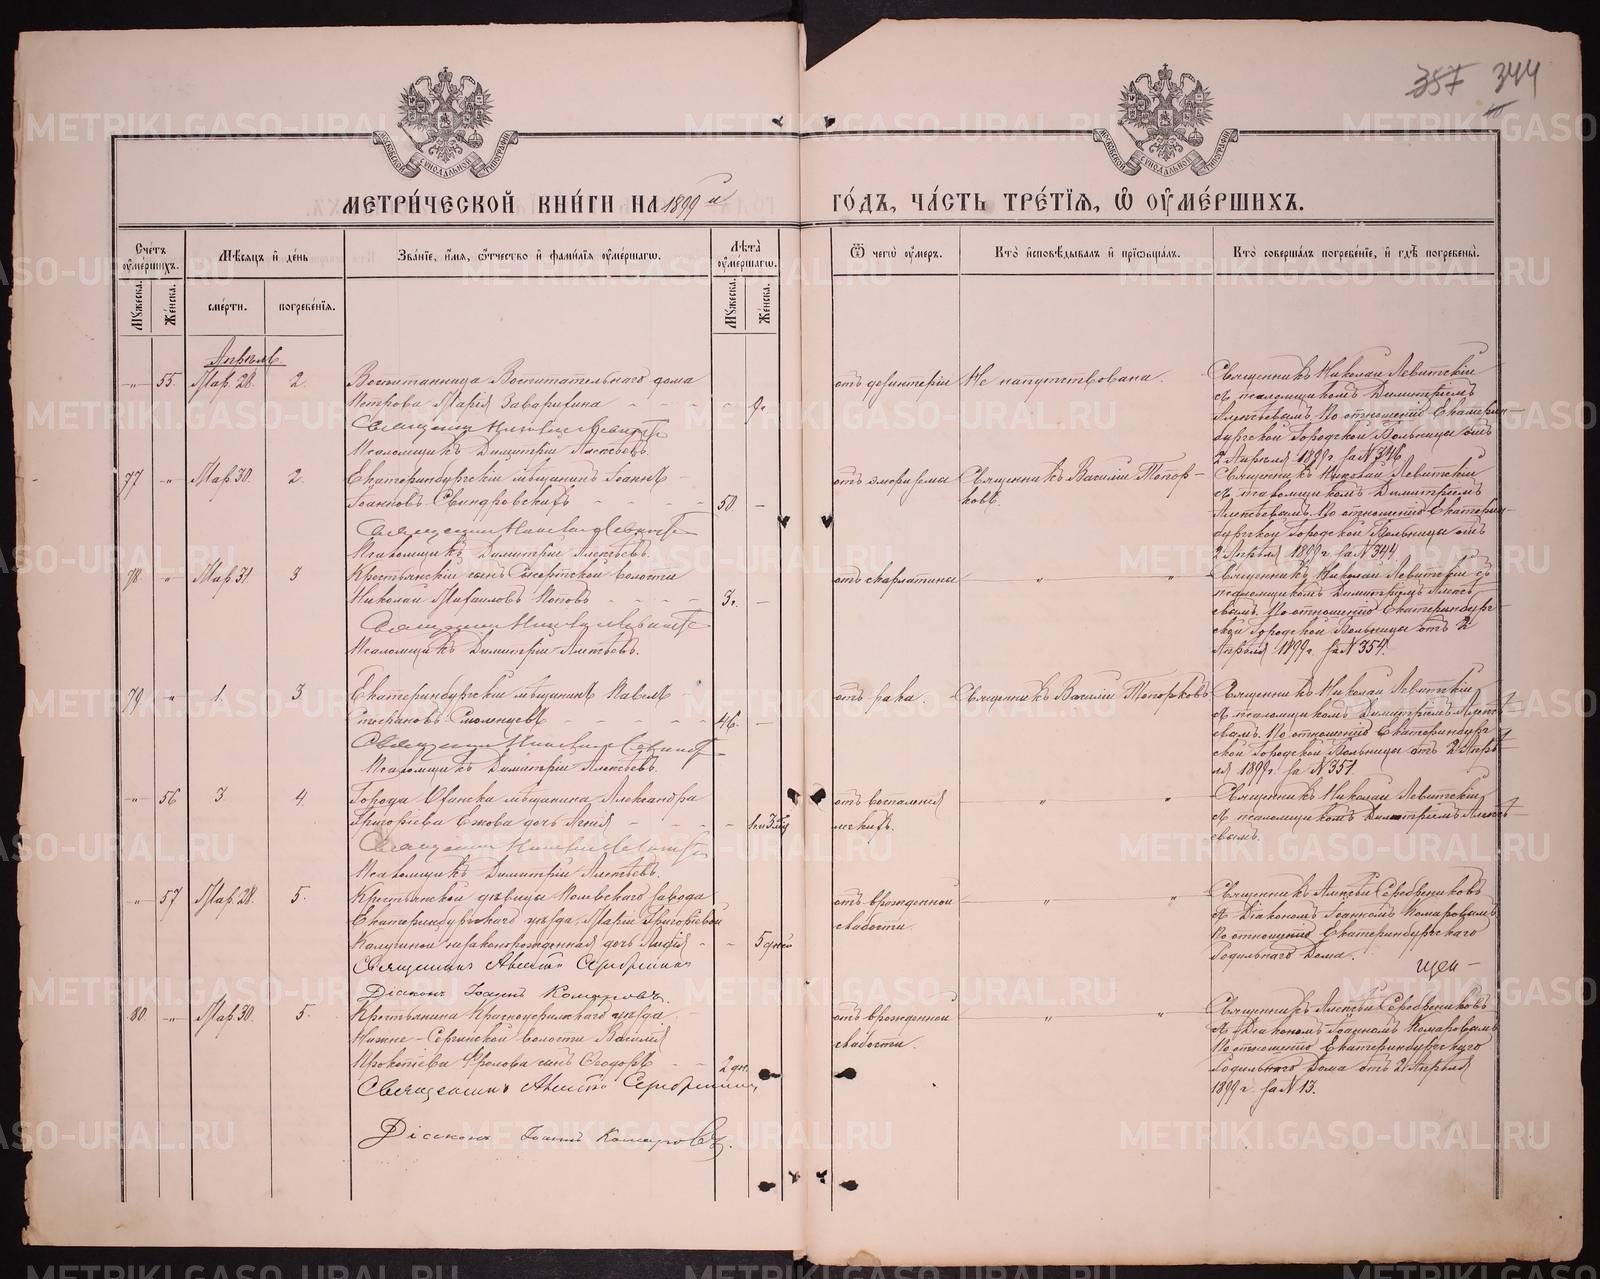 357 344
МОСКОВСКОЙ СИНОДАЛЬНОЙ ТИПОГРАФІИ
МОСКОВСКОЙ СИНОДАЛЬНОЙ ТИПОГРАФІИ
МЕТРИ́ЧЕСКОЙ КНИ́ГИ НА 1899 й
ГО́ДЪ, ЧА́СТЬ ТРЕ́ТІѦ, Ѡ҆ ОУ҆МЕ́РШИХЪ.
Сче́тъ оу҆ме́ршихъ.
Мѣ́сяцъ и҆ де́нь
Зва́ніе, и҆́мя, ѻ҆́тчество и҆ фами́лія оу҆ме́ршагѡ.
Лѣта̀ оу҆ме́ршагѡ.
Ѿ чегѡ̀ оу҆́меръ.
Кто̀ и҆сповѣ́дывалъ и҆ прїѡбща́лъ.
Кто̀ соверша́лъ погребе́ніе, и҆ гдѣ̀ погребены̀.
Му́жеска. Же́нска.
сме́рти. погребе́нїя.
Му́жеска. Же́нска.
Апрѣль
" 55 Мар. 28. 2.
Воспитанница Воспитательнаго дома
Петрова Марія
Священникъ Николай Левитскій
Псаломщикъ Димитрій Алексѣевъ.
Не напутствована.
Священникъ Николай Левитскій
съ псаломщикомъ Димитріемъ
Алексѣевымъ. По отношенію Екатерин-
бургской Городской Больницы отъ
2 Апрѣля 1899 г. за № 346
77 " Мар. 30. 2.
Екатеринбургскій мѣщанинъ Іоаннъ
Іоанновъ
50. –
Священникъ Николай Левитскій
Псаломщикъ Димитрій Алексѣевъ.
Священникъ Василій Топор-
ковъ.
Священникъ Николай Левитскій
съ псаломщикомъ Димитріемъ
Алексѣевымъ. По отношенію Екатерин-
бургской Городской Больницы отъ
2 Апрѣля 1899 г. за № 344
78. " Мар. 31 3
Крестьянскій сынъ Сысертской волости
Николай Михаиловъ Поповъ
3 г. –
Священникъ Николай Левитскій
Псаломщикъ Димитрій Алексѣевъ.
отъ скарлатины
" "
Священникъ Николай Левитскій съ
псаломщикомъ Димитріемъ Алексѣ-
евымъ. По отношенію Екатеринбург-
ской Городской Больницы отъ 2
Апрѣля 1899 г. за № 354.
79 " 1. 3
Екатеринбургскій мѣщанинъ Павелъ
Стефановъ Смоленцевъ
46. –
Священникъ Николай Левитскій
Псаломщикъ Димитрій Алексѣевъ.
отъ рака.
Священникъ Василій Топорковъ
Священникъ Николай Левитскій
съ псаломщикомъ Димитріемъ Алексѣ-
евымъ. По отношенію Екатеринбург-
ской Городской Больницы отъ 2 Апрѣ-
ля 1899 г. за № 351.
" 56 3. 4.
Города Оханска мѣщанина Александра
Григоріева Ежова дочь
Священникъ Николай Левитскій
Псаломщикъ Димитрій Алексѣевъ.
отъ воспаленія
легкихъ.
" "
Священникъ Николай Левитскій
съ псаломщикомъ Димитріемъ Алексѣ-
евымъ.
" 57 Мар. 28. 5.
Крестьянской дѣвицы Полевскаго завода
Екатеринбургскаго уѣзда, Маріи Григоріевой
Калугиной незаконорожденная дочь Лидія
5 дней
Священникъ Алексѣй Серебрениковъ
Діаконъ Іоаннъ Комаровъ.
отъ врожденной
слабости.
" "
Священникъ Алексѣй Серебрениковъ
съ Діакономъ Іоанномъ Комаровымъ
По отношенію Екатеринбургскаго
Родильнаго Дома.
80 " Мар. 30. 5.
Крестьянина Красноуфимскаго уѣзда
Нижне-Сергинской волости Василія
Прокопіева Фролова сынъ Ѳеодоръ
2 дн.
Священникъ Алексѣй Серебрениковъ
Діаконъ Іоаннъ Комаровъ.
отъ врожденной
слабости.
" "
Священникъ Алексѣй Серебрениковъ
съ Діакономъ Іоанномъ Комаровымъ
По отношенію Екатеринбургскаго
Родильнаго Дома отъ 2 Апрѣля
1899 г. за № 13.
METRIKI.GASO-URAL.RU